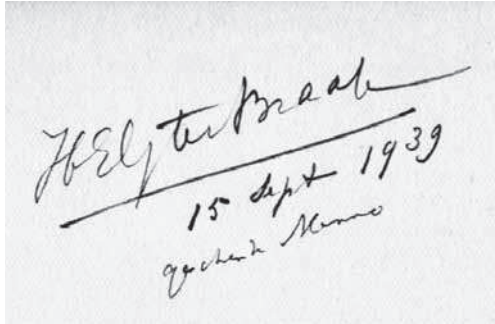 HEG ter Braak
15 Sept 1939
geschenk Menno